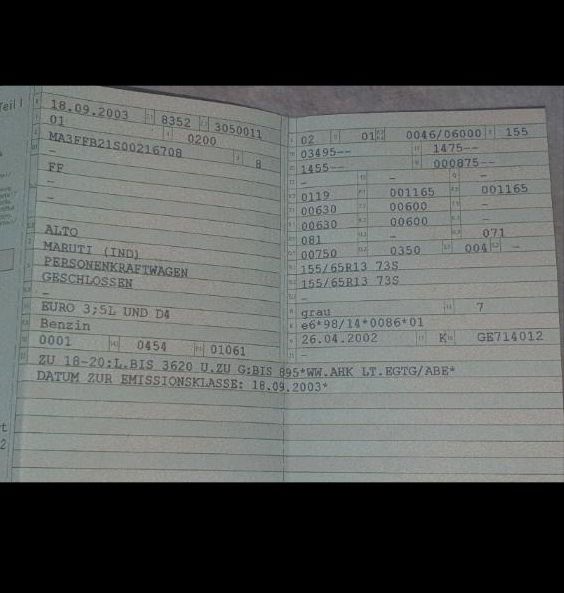 Teil I
18.09.2003 8352 3050011
01 0200
MA3FFB21S00216708 8
-
FF
-
-
ALTO
MARUTI (IND)
PERSONENKRAFTWAGEN
GESCHLOSSEN
-
EURO 3;5L UND D4
Benzin
0001 0454 01061
02 01 0046/06000 155
03495-- 1475--
1455-- 000875--
- - -
0119 001165 001165
00630 00600 -
00630 00600 -
081 - 071
00750 0350 004 -
155/65R13 73S
155/65R13 73S
-
grau 7
e6*98/14*0086*01
26.04.2002 K GE714012
-
ZU 18-20:L.BIS 3620 U.ZU G:BIS 895*WW.AHK LT.EGTG/ABE*
DATUM ZUR EMISSIONSKLASSE: 18.09.2003*